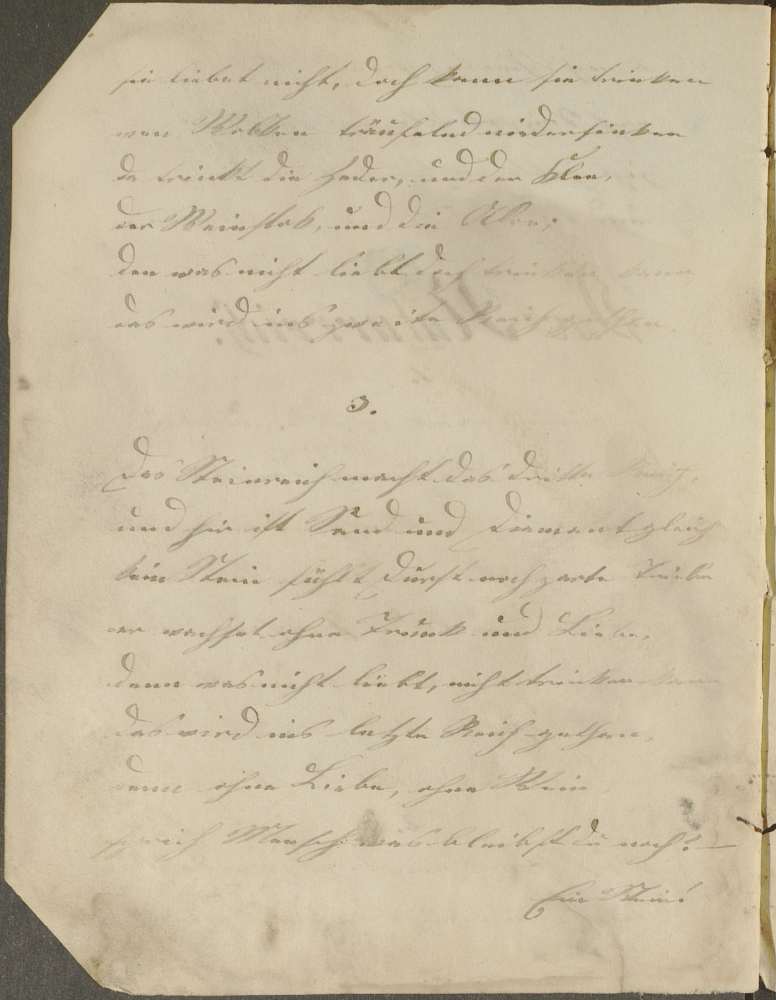 sie liebet nicht, doch kann sie trinken
wen Wolken träufelnd niedersinken
da trinkt die Zeder, und der Klee,
der Weinstok, und die Aloe;
den was nicht liebt doch trinken kann
das wird ins zweite Reich gethan
3.
Das Steinreich macht das dritte Reich,
und hir ist Sand und Diamant gleich
kein Stein fühlt Durst noch zarte Triebe
er wachset ohne Trunk und Liebe,
denn was nicht liebt, nicht trinken kann
das wird ins letzte Reich gethan,
denn ohne Liebe, ohne Wein
sprich Mensch was bleibst du noch? –
Ein Stein!